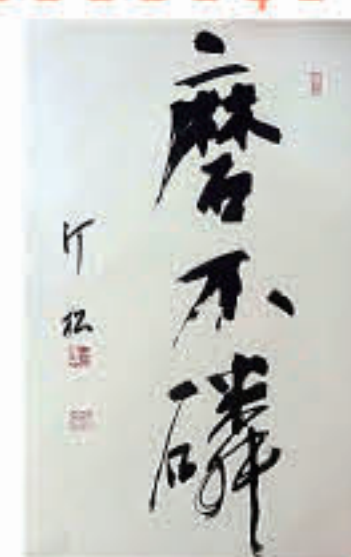 磨不磷
松